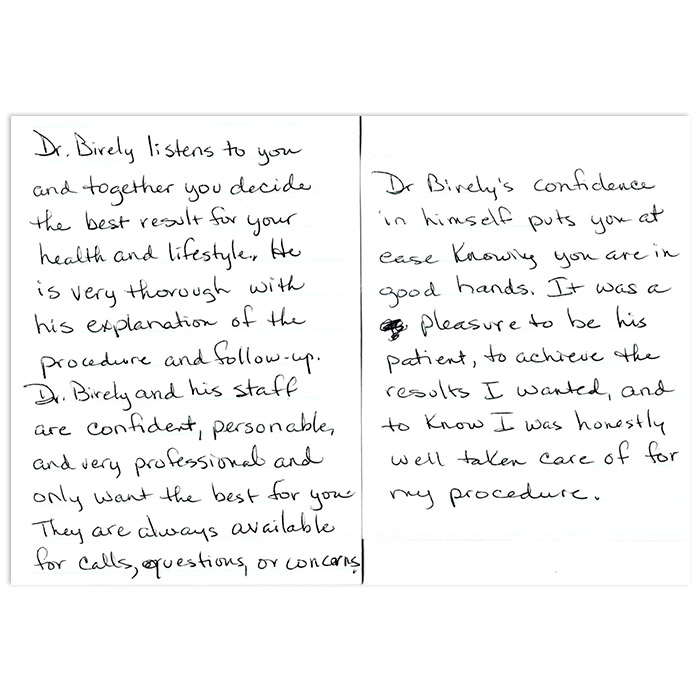 Dr. Birely listens to you
and together you decide
the best result for your
health and lifestyle. He
is very thorough with
his explanation of the
procedure and follow-up.
Dr. Birely and his staff
are confident, personable,
and very professional and
only want the best for you
They are always available
for calls, questions, or concerns.
Dr Birely's confidence
in himself puts you at
ease knowing you are in
good hands. It was a
pleasure to be his
patient, to achieve the
results I wanted, and
to know I was honestly
well taken care of for
my procedure.